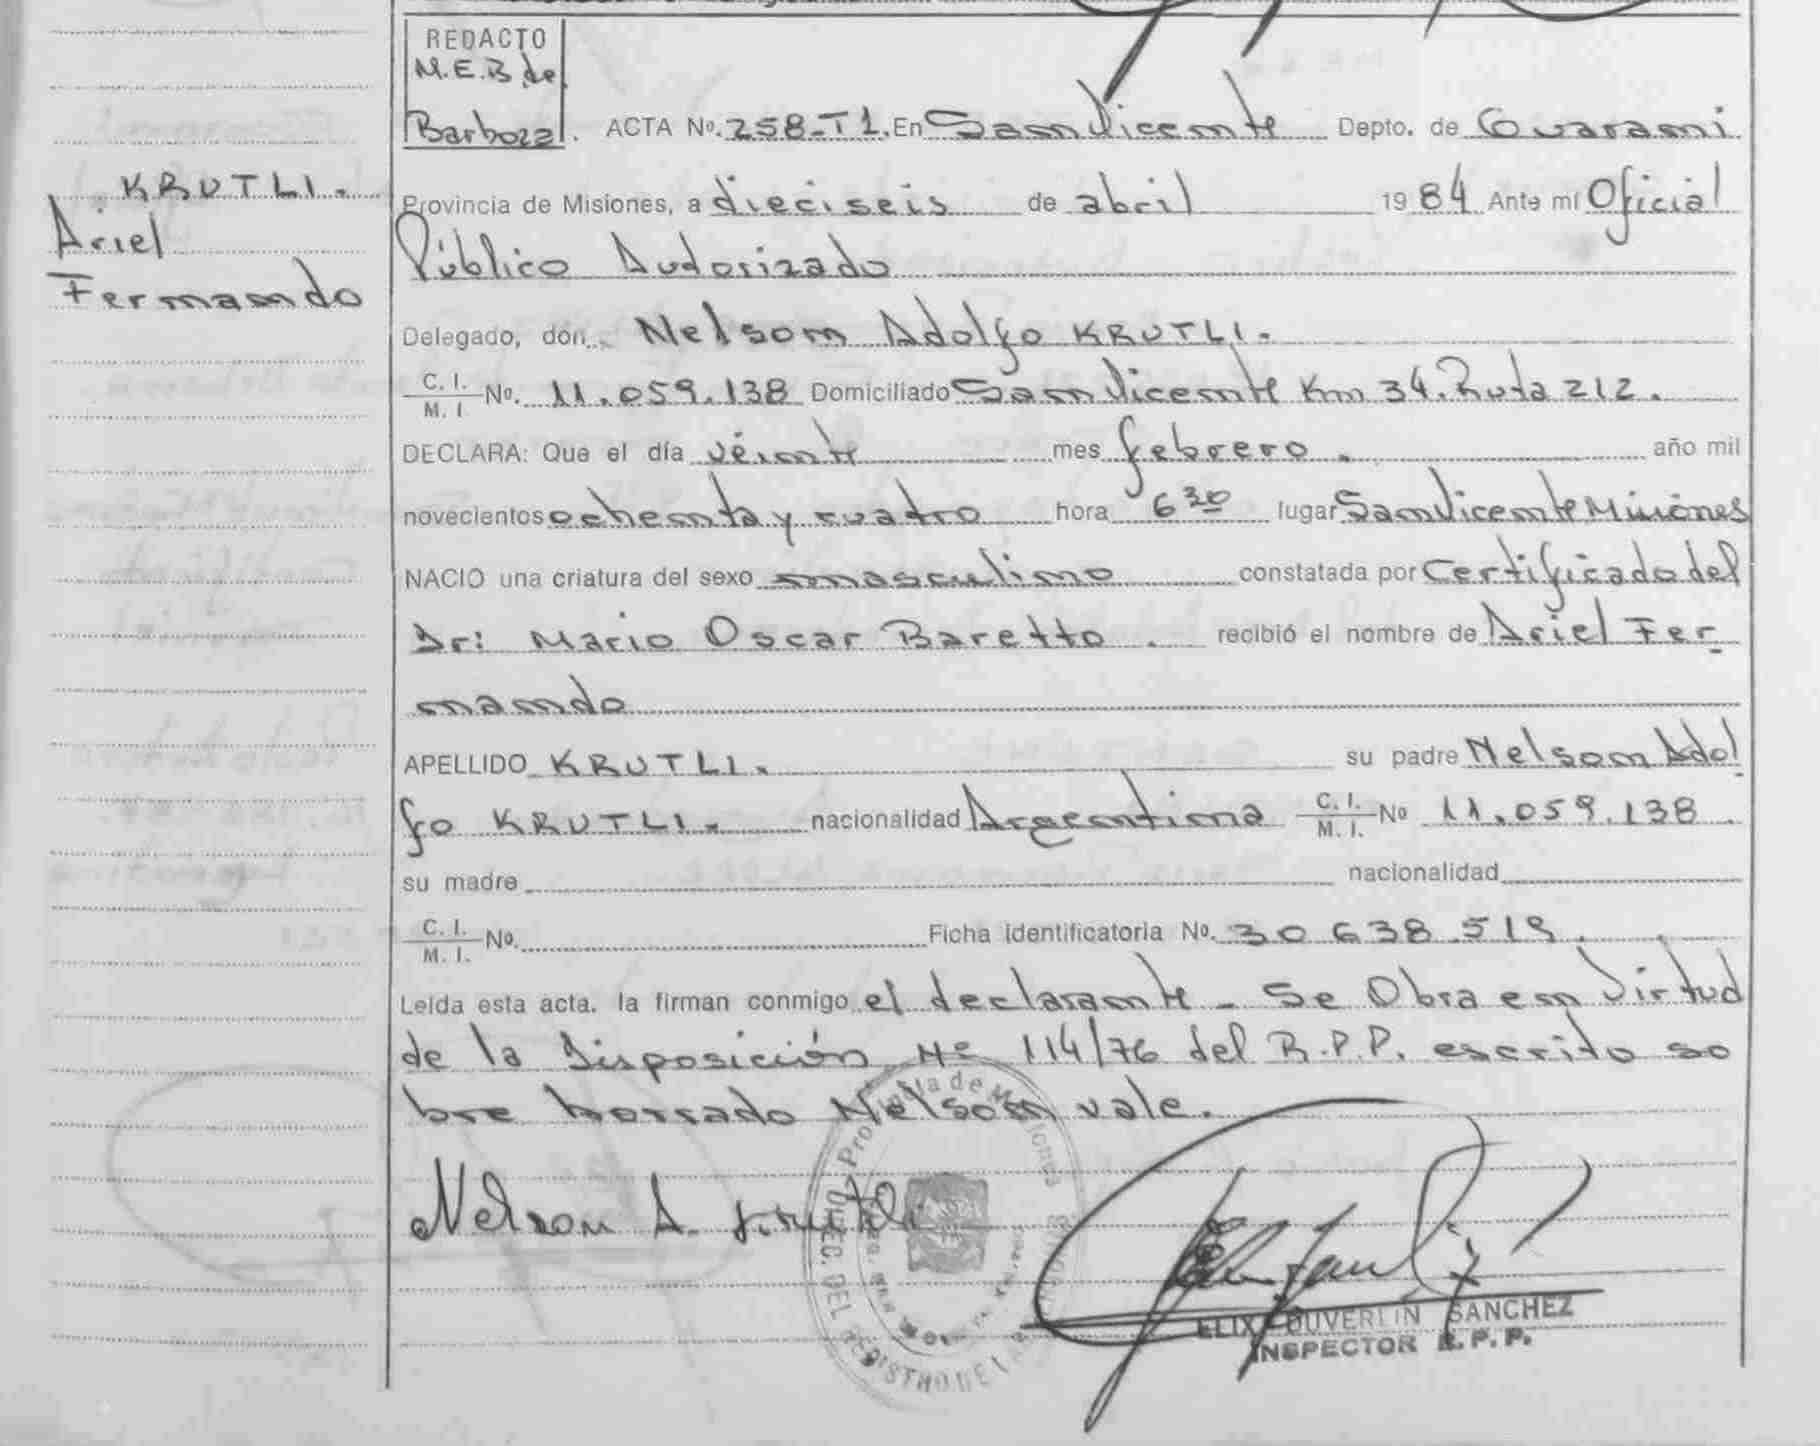 REDACTO
M.E.B de
Barboza.
ACTA Nº. 258-T1. En San Vicente Depto. de Guarani
KRUTLI.
Ariel
Fernando
Provincia de Misiones, a dieciseis de abril 1984 Ante mi Oficial
Público Autorizado
Delegado, don Nelson Adolfo KRUTLI.
C. I.
M. I Nº. 11.059.138 Domiciliado San Vicente Km 34. Ruta 212.
DECLARA: Que el día veinte mes febrero. año mil
novecientos ochenta y cuatro hora 6 30 lugar San Vicente Misiones
NACIO una criatura del sexo masculino constatada por Certificado del
Dr: Mario Oscar Baretto. recibió el nombre de Ariel Fer
nando
APELLIDO KRUTLI. su padre Nelson Adol
fo KRUTLI. nacionalidad Argentina C. I.
M. I. Nº 11.059.138
su madre nacionalidad
C. I.
M. I. Nº. Ficha identificatoria Nº. 30 638.519.
Leída esta acta. la firman conmigo el declarante - Se Obra en Virtud
de la Disposición Nº 114/76 del R.P.P. escrito so
bre borrado Nelson vale.
Nelson A. Krutli
Provincia de Misiones
DIREC. DEL REGISTRO DE LAS
ELIX DUVERLIN SANCHEZ
INSPECTOR R.P.P.